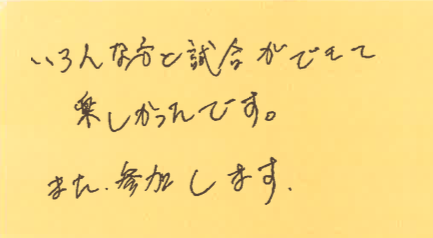 いろんな方と試合ができて
楽しかったです。
また、参加します。